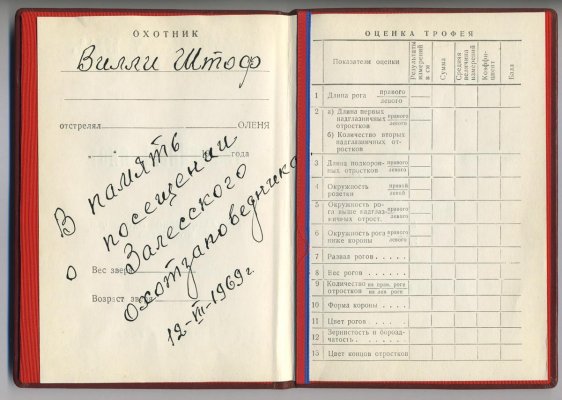 ОХОТНИК
Вилли Штоф
отстрелял ОЛЕНЯ
19 года
Вес зверя
Возраст зверя
В память
о посещении
Залесского
Охотзаповедника
12-III-1969г.
ОЦЕНКА ТРОФЕЯ
Показатели оценки
Результаты измерений в см
Сумма
Средняя величина измерений
Коэффициент
Балл
1 Длина рога правого левого
2 а) Длина первых надглазничных отростков правого левого
б) Количество вторых надглазничных отростков
3 Длина подкоронных отростков правого левого
4 Окружность розетки правой левой
5 Окружность рога выше надглазничных отрост. правого левого
6 Окружность рога ниже короны правого левого
7 Развал рогов
8 Вес рогов
9 Количество отростков на прав. роге на лев. роге
10 Форма короны
11 Цвет рогов
12 Зернистость и бороздчатость
13 Цвет концов отростков